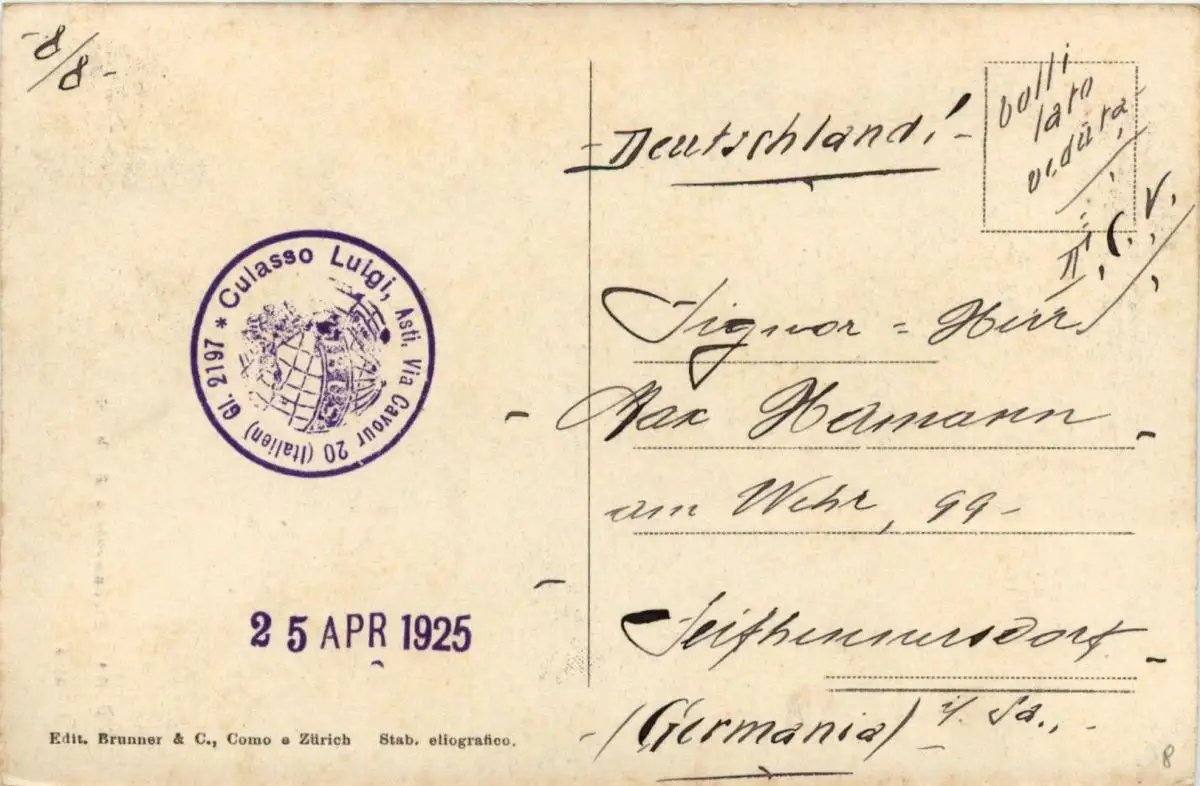 8/8-
- Deutschland! -
bolli
lato
veduta,
II, C. V.
Signor = Herr
Max Hermann
am Wehr, 99-
Seifhennersdorf
(Germania) i/. Sa.,
Culasso Luigi, Asti. Via Cavour 20 (Italien) Gl. 2197 *
25 APR 1925
Edit. Brunner & C., Como e Zürich Stab. eliografico.
8